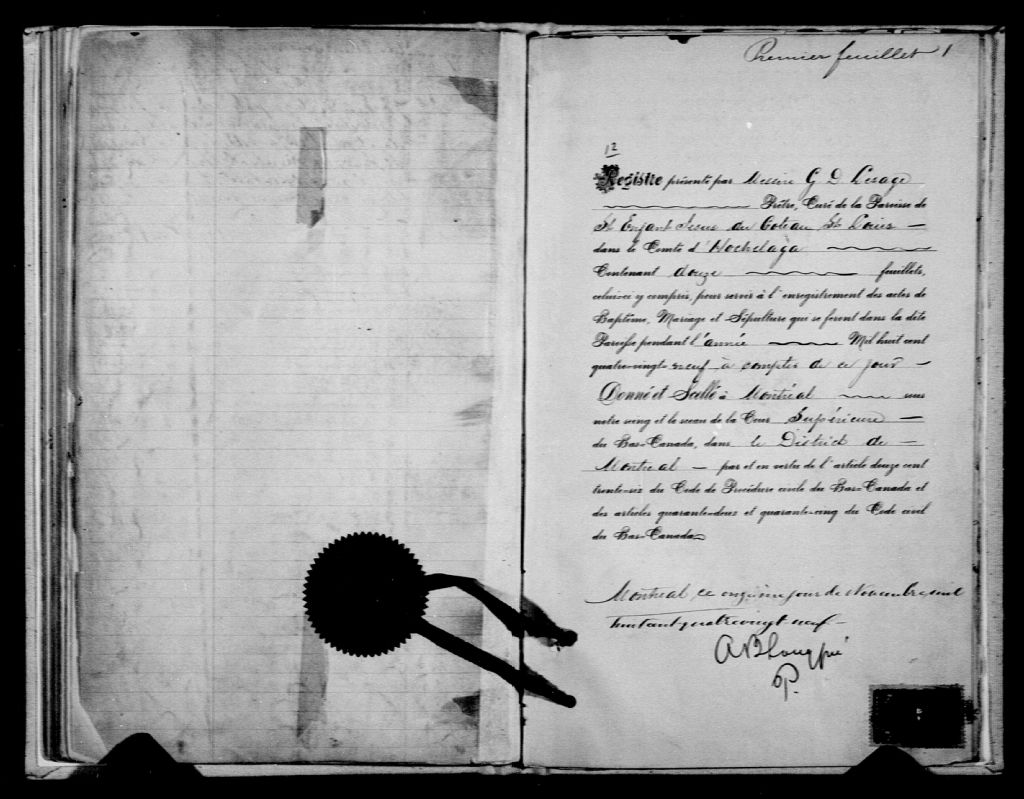 Premier feuillet 1
12
Registre présenté par Messire G D Lesage
Prêtre, Curé de la Paroisse de
St Enfant Jesus du Coteau St Louis
dans le Comté d'Hochelaga
Contenant douze feuillets,
celui-ci y compris, pour servir à l'enregistrement des actes de
Baptême, Mariage et Sépulture qui se feront dans la dite
Paroisse pendant l'année Mil huit cent
quatre-vingt-neuf à compter de ce jour
Donné et Scellé à Montréal sous
notre seing et le sceau de la Cour Supérieure
du Bas-Canada, dans le District de
Montreal par et en vertu de l'article douze cent
trente-six du Code de Procédure civile du Bas-Canada et
des articles quarante-deux et quarante-cinq du Code civil
du Bas-Canada
Montreal ce onzieme jour de Novembre mil
huit cent quatre vingt neuf
A B Longpré
P.